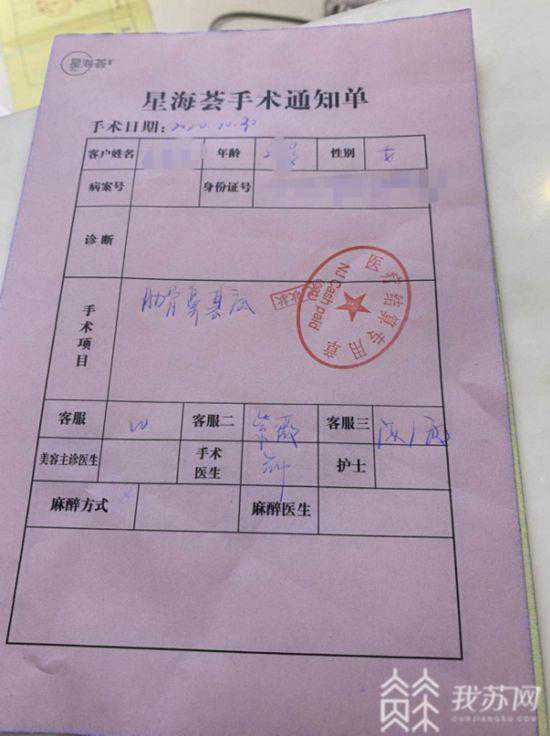 星海荟
星海荟手术通知单
手术日期: 2020.10.30
客户姓名 年龄 性别 女
病案号 身份证号
诊断
手术项目 肋骨鼻基底
医疗结算专用章
NJ Cash paid
收讫
客服 客服二 紫薇 客服三
美容主诊医生 手术医生 护士
麻醉方式 麻醉医生
我苏网
OURJIANGSU.COM